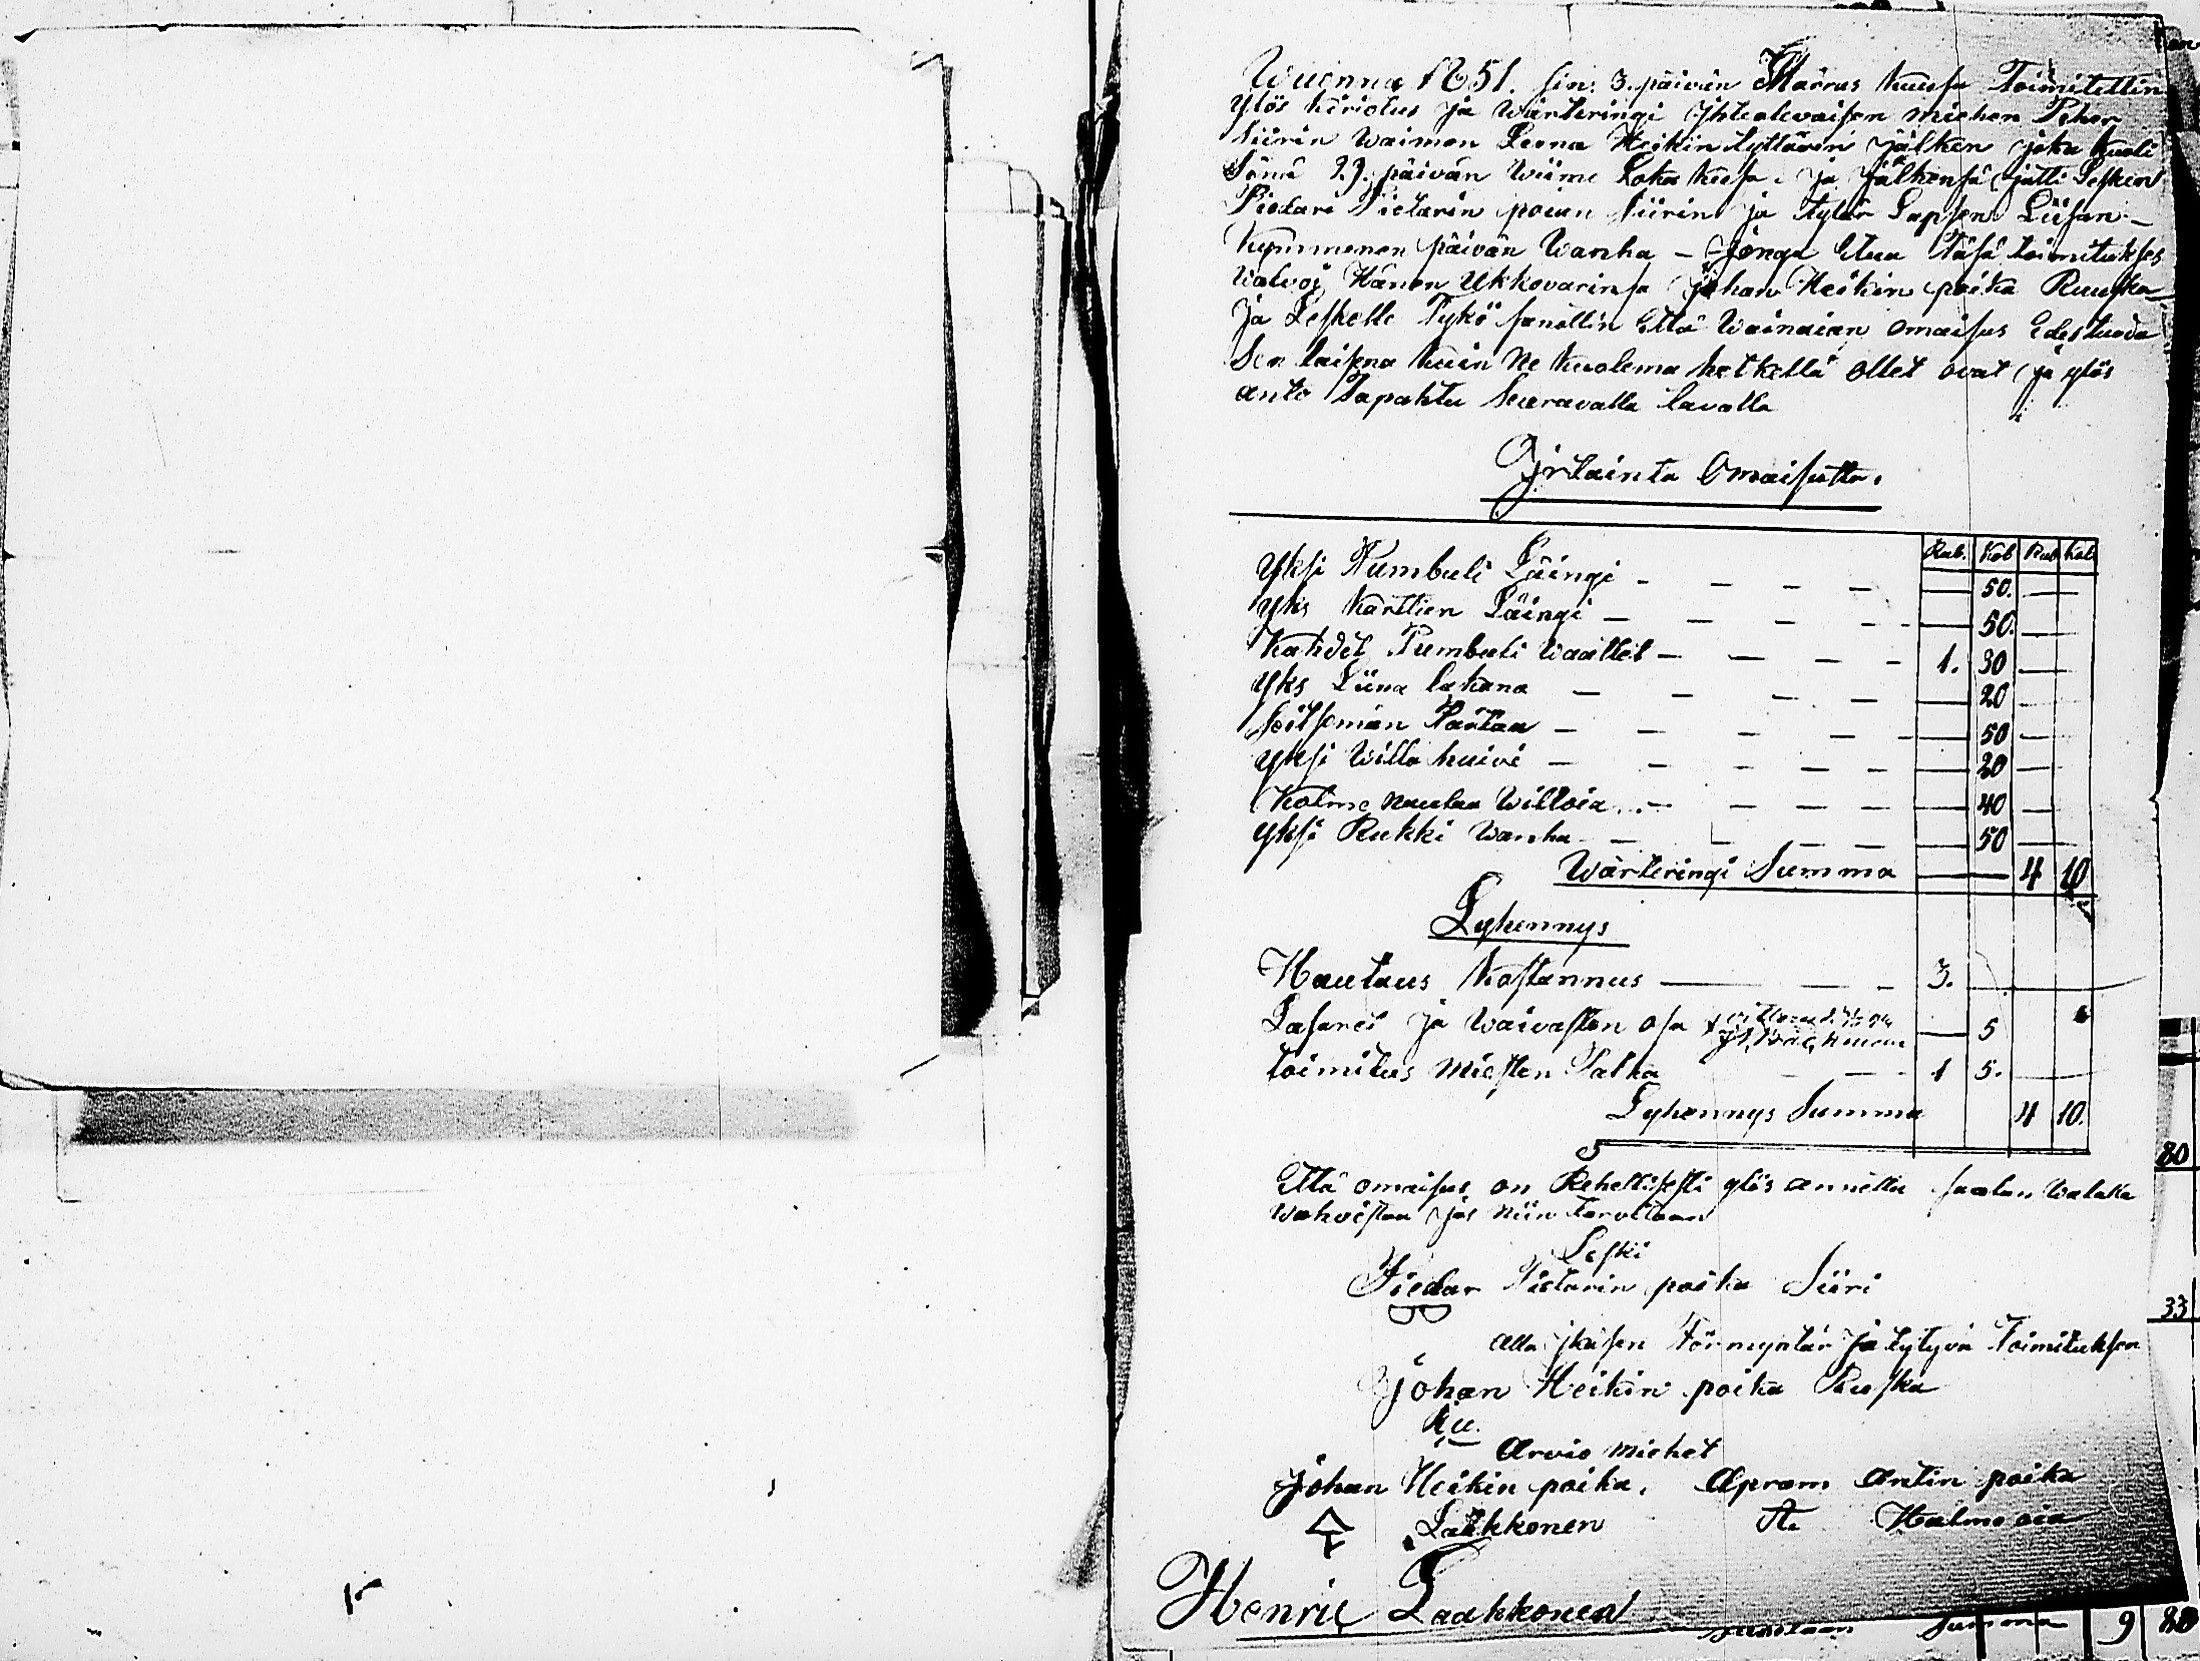 Wuonna 1851. sin: 3. päivän Marras kuusa Toimitettin
ylös kiriotus ja Wärteringi ythealevaisen miehen Peher
Siirin Waimon Leena Heikin tyttärin jälken joka kuoli
Sinä 27. päivän Wiime Loka kuusa. ja jälkensä jätti Lesken
Pietari Pietarin poian Siirin ja tytär Lapsen Liisan –
Kymmenen päivän Wanha – jonga Etua täsä toimitukses
Walvoi Hänen Ukkovarinsa Johan Heikin poika Ruuska
Ja Leskelle Tykö sanottin Että Wainaian omaisus Edestuoda
Sen laisena kuin Ne kuolema hetkellä ollet ovat ja ylös
anto Tapahtu Seuravalla tavalla
Irtainta Omaisutta.
Rub. Kob Rub Kob
Yksi Kumbuli Läingi – – – – 50.
Yks karttien Läingi – – – – 50.
Kahdet Pumbuli Waattet – – – – 1. 30
Yks Liina lakana – – – – 20
Seitsemän Paitaa – – – – 50
Yksi Willa huivi – – – – 20
Kolme naulaa Willoia – – – – 40
Yksi Rukki Wanha – – – – 50
Wärteringi Summa 4 10
Lyhennys
Hautaus kostannus – – – 3.
Lasaret ja Waivasten osa 5
toimitus Miesten Palka – – – 1 5.
Lyhennys Summa 4 10.
Että omaisus on Rehellisesti ylös annettu saatan Walalla
Wahvistaa jos niin tarvitaan
Leski
Piedar Pietarin poika Siiri
alla ikäisen Förmyntär ja tytyvä toimituksen
Johan Heikin poika Ruska
Arvio miehet
Johan Heikin poika. Apram Antin poika
Laukkonen Halmoaia
Henric Laakkonen
Summa 9 80
80
33